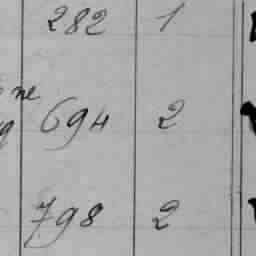 282 1
ne
694 2
798 2